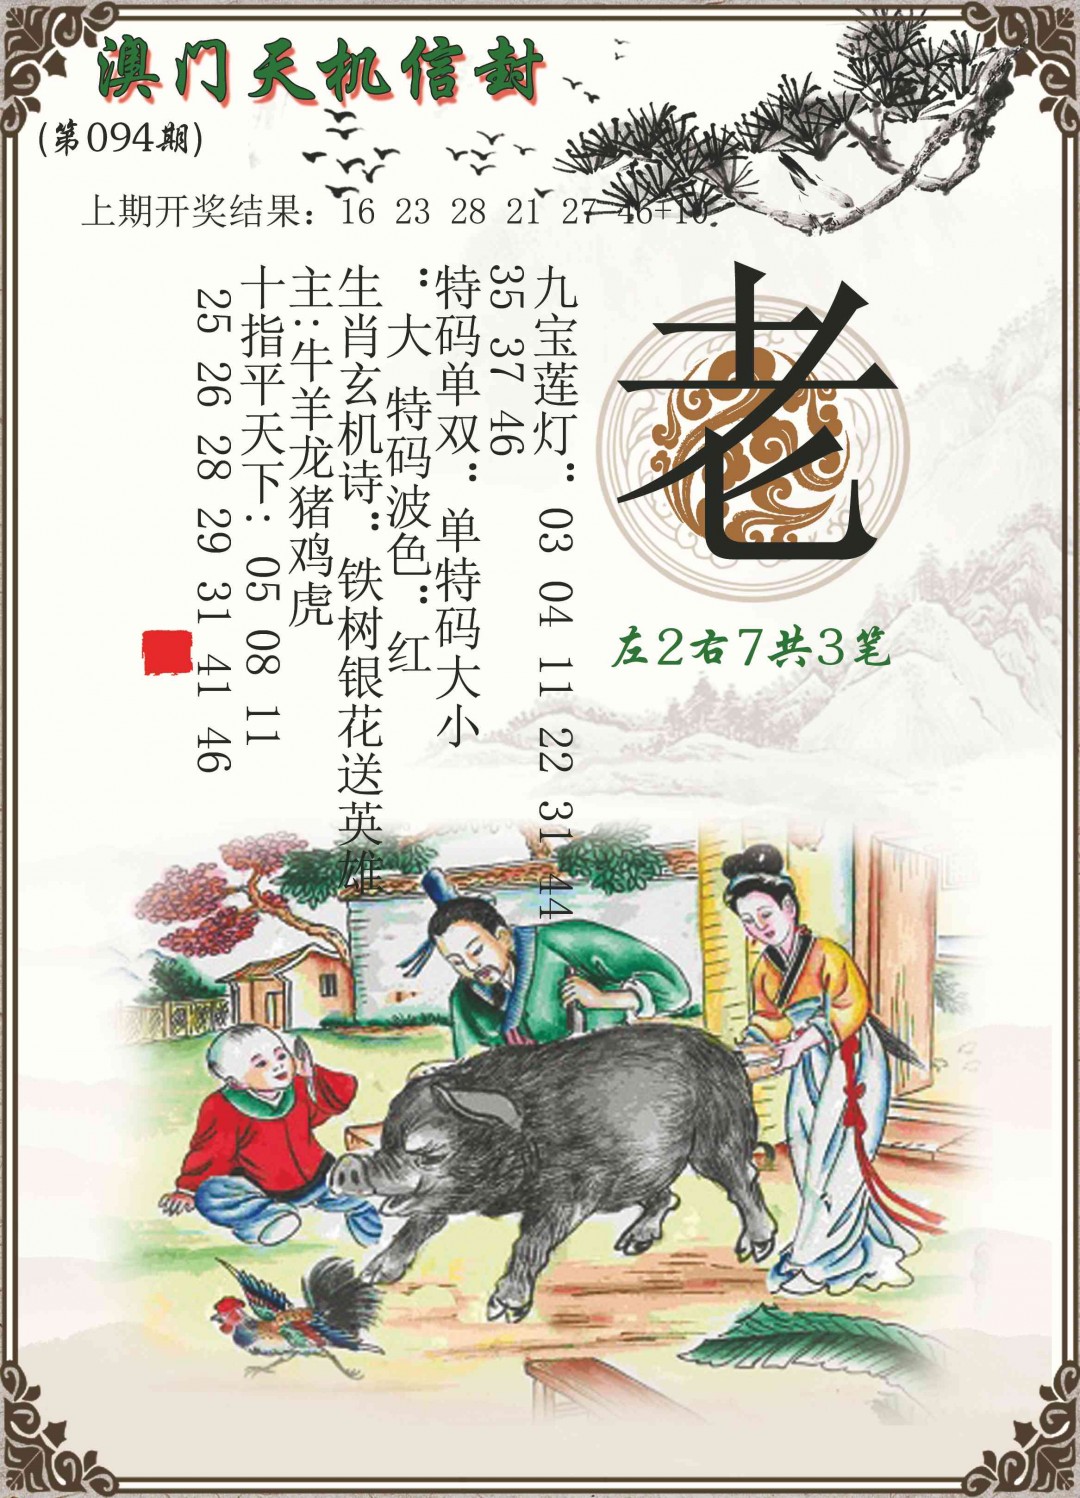 澳门天机信封
(第094期)
上期开奖结果：16 23 28 21 27 46+10
老
左2右7共3笔
九宝莲灯：03 04 11 22 31 44
35 37 46
特码单双：单特码大小
：大 特码波色：红
生肖玄机诗：铁树银花送英雄
主：牛羊龙猪鸡虎
十指平天下：05 08 11
25 26 28 29 31 41 46